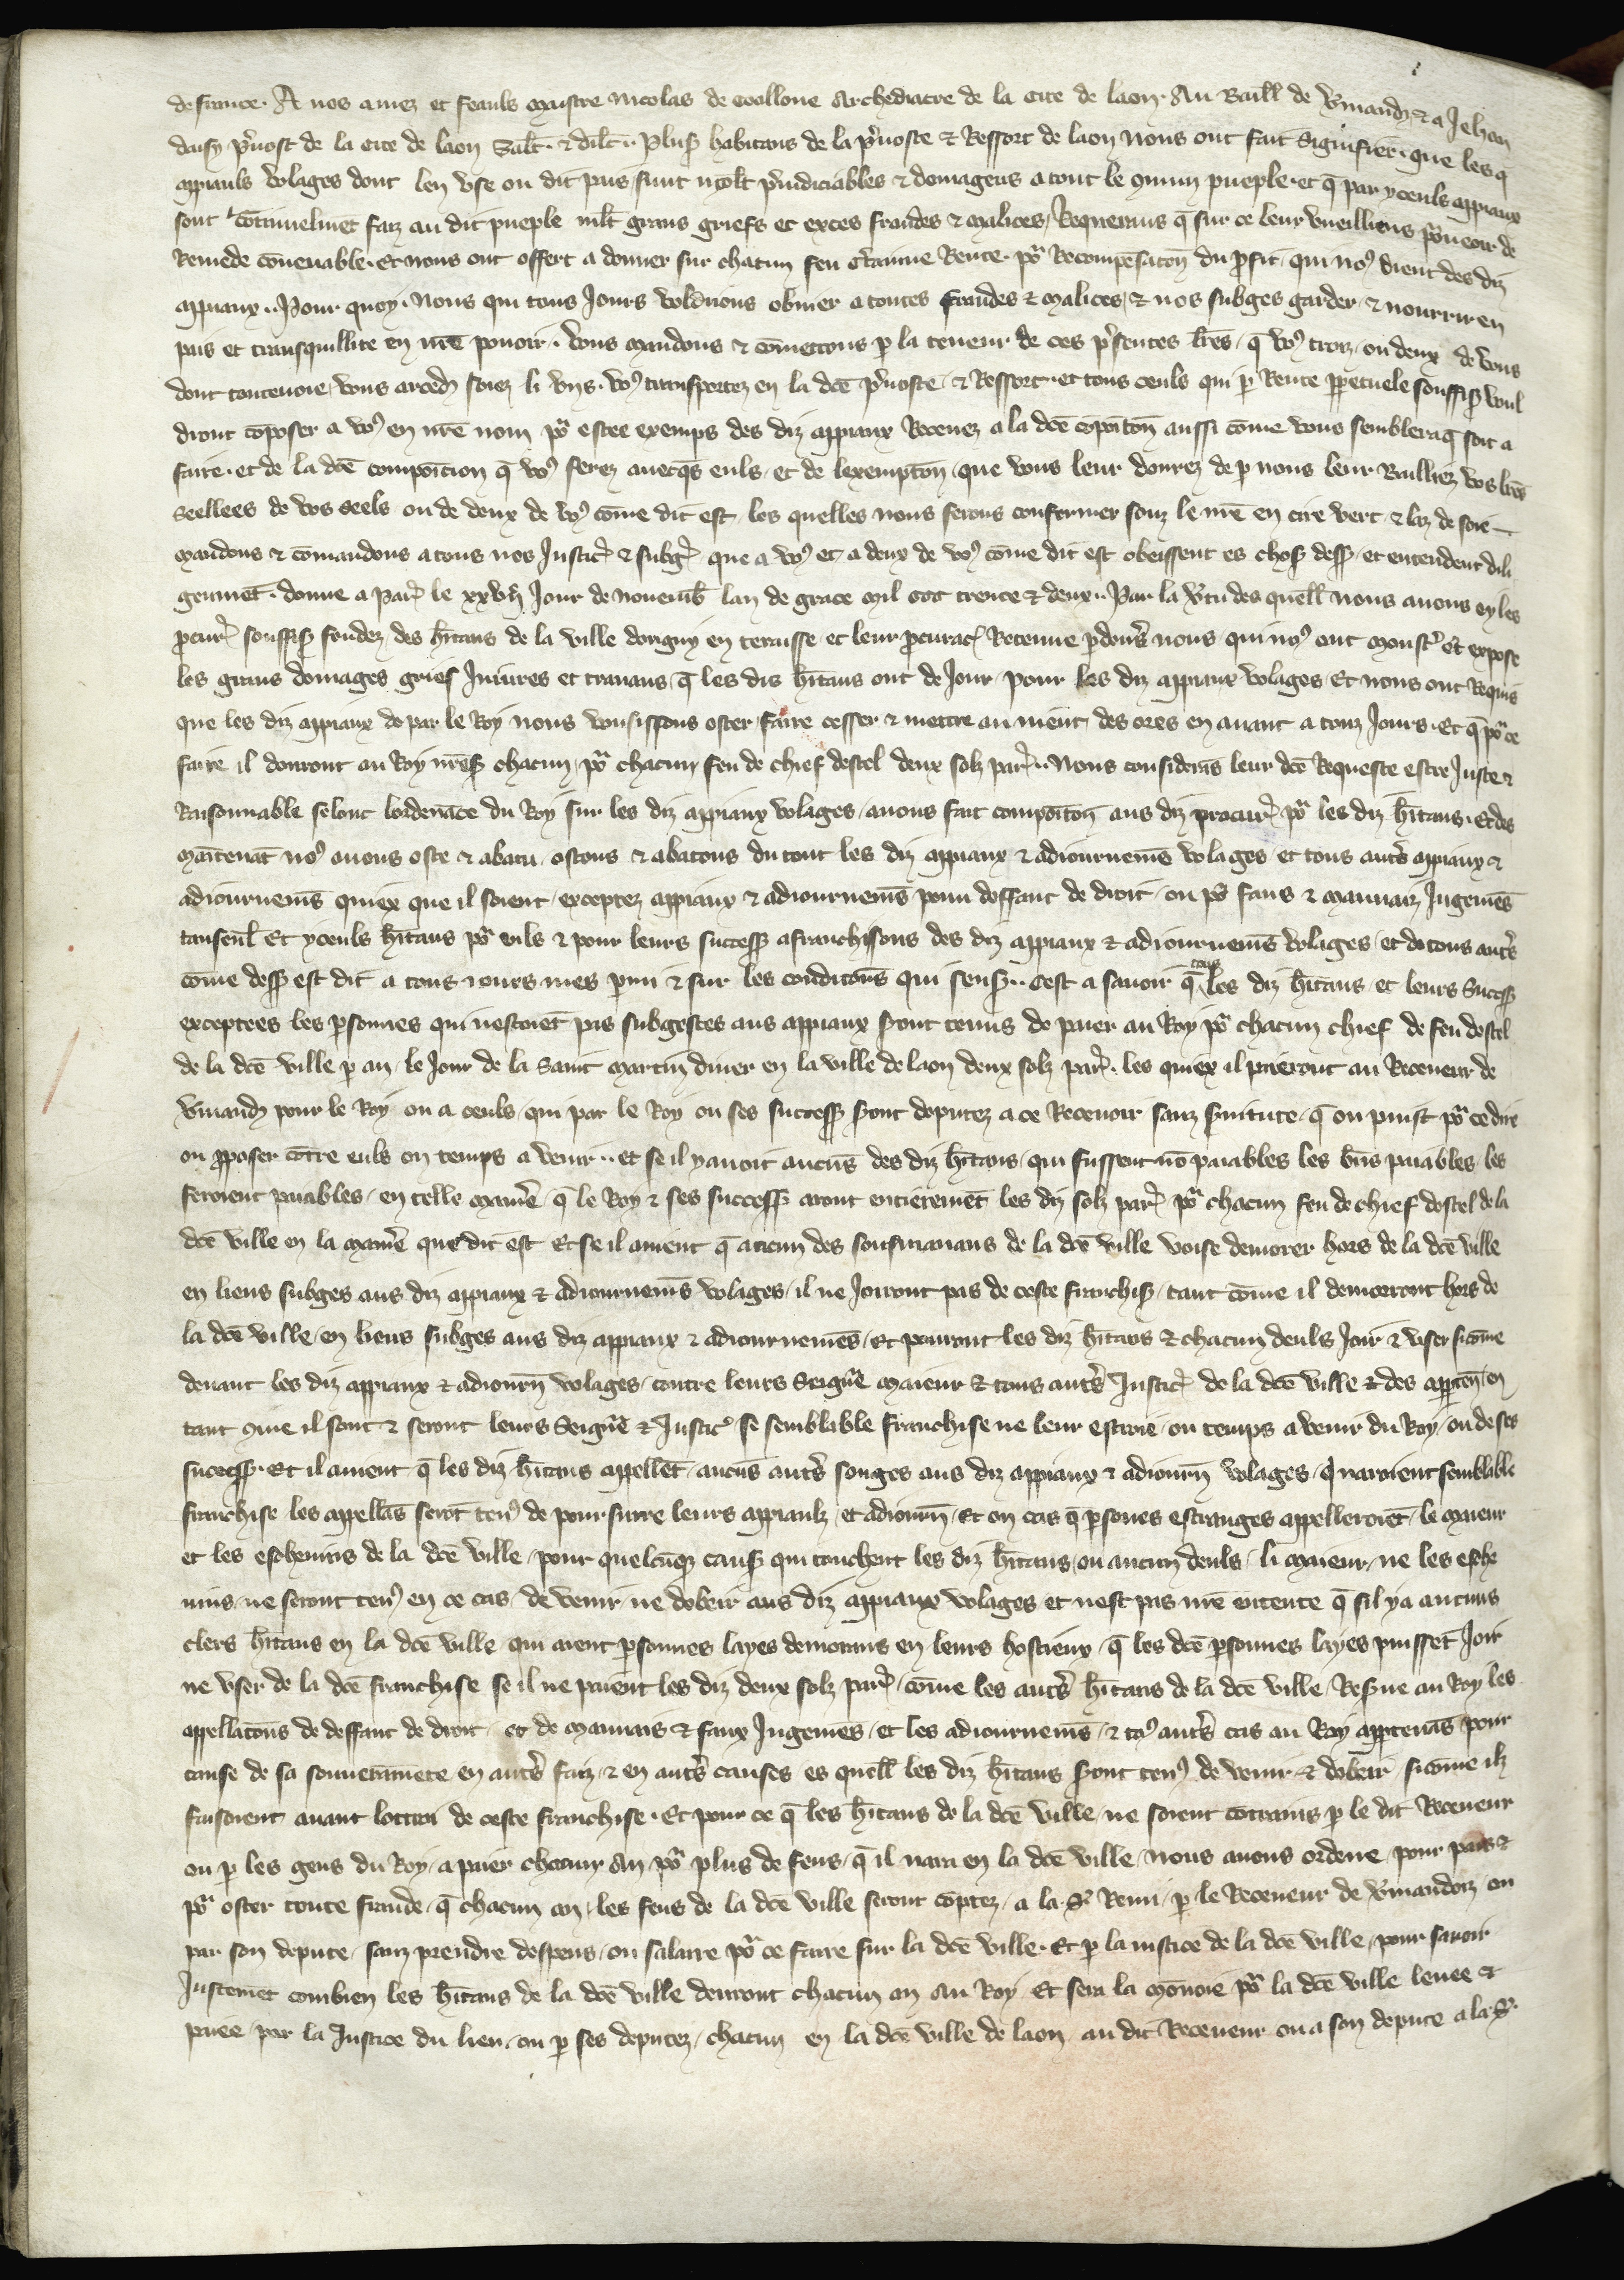 de france. A nos amez et feauls maistre Nicolas de Arcediacre de la Cite de laon. Au Baill de Vmandz & a Jehan
daisy pruost de la cite de laon Salt. & dilt. Plus habitans de la pruoste & Ressort de laon nous ont fait signifier. que les
appiauls volages dont len vse ou dit pais sunt molt preiudiciables & domageus a tout le cmun pueple. et q par yceuls appiaux
sont cotinuelmet faiz au dit pueple mlt grans griefs et exces fraudes & malices. Requerans q sur ce leur vueilliens pourueoir de
Remede couenable. Et nous ont offert a donner sur chacun feu certainne Rente. por Recompensacon du profit qui nos vient des diz
appiaux. Pour quoy. Nous qui tous jours voldrions obuier a toutes fraudes & malices, & nos subges garder & nourrir en
pais et transquillite en nre pouoir. vous mandons & comettons p la teneur de ces presentes lres, q vos troiz, ou deux de vous
dont vous arced soiez li vns. vos transportez en la dce pruoste & Ressort. et tous ceuls qui p Rente ppetuele souffis voul
dront coposer a vos en nre nom por estre exemps des diz appiaux Receuez a la dce copoicon aussi come vous semblera q soit a
faire. et de la dce composicion q vos ferez auecqs euls, et de lexempcon que vous leur donrez de p nous leur Bailliez vos lres
Seellees de vos seels ou de deux de vos come dit est, les quelles nous ferons confermer souz le nre en cire vert & laz de soie
mandons & comandons a tous nos Justic & subges que a vos et a deux de vos come dit est obeissent es choses dess et entendent dili
genmet. donne a Par le xxvij Jour de nouemb lan de grace mil ccc trente & deux. Par la vertu des quell nous auons oy les
pcurs souffis fondez des hitans de la ville dorigny en teraisse et leur pcurac Receue pdeuers nous qui nos ont monstre et expose
les grans domages grief Iniures et trauaus q les dis hitans ont de Jour pour les diz appiaux volages, Et nous ont Requis
que les diz appiaux de par le Roy nous vousissons oster, faire cesser & mettre au nient des ores en auant a touz Jours. Et q por ce
faire il donront au Roy nres chacun por chacun feu de chief dostel deux solz par. Nous considerans leur dce Requeste estre Juste &
Raisonnable selonc lordenace du Roy sur les diz appiaux volages, auons fait compoicon aus diz procurs por les diz hitans. Et des
maitenat nos auons oste & abatu ostons & abatons du tout les diz appiaux & adiournemes volages et tous autrs appiaux &
adiournems quiex que il soient exceptez appiaux & adiournems pour deffaut de droit, ou por faus & mauuaiz Jugemes
tanseul. Et yceuls hitans por euls & pour leurs success afranchissons des diz appiaux & adiournems volages, et de tous autrs
come dess est dit a tous iours mes pmi & sur les condicons qui sens. Cest a sauoir q tous les diz hitans et leurs Success
exceptees les psonnes qui nestoiet pas subgestes aus appiaux seront tenus de paier au Roy por chacun chief de feu dostel
de la dce ville p an le Jour de la saint martin diuer en la ville de laon deux solz par. les quiex il paieront au Receueur de
Vmandz pour le Roy ou a ceuls qui par le Roy ou ses success seront deputez a ce Receuoir sanz seruitute q on puist por ce dire
ou pposer cotre euls ou temps a venir. et se il yauoit aucus des diz hitans qui fussent no paiables les bies paiables les
feroient paiables, en telle manre q le Roy & ses success aront entieremet les diz solz par por chacun feu de chief dostel de la
dce ville en la manre que dit est Et se il auient q aucun des sousmanans de la dce ville voise demorer hors de la dce ville
en lieus subges aus diz appiaux & adiournems volages, il ne Joiront pas de ceste franchis tant come il demorront hors de
la dce ville, en lieus subges aus diz appiaux & adiournemes, Et porront les diz hitans & chacun deuls Joir & vser sicome
deuant les diz appiaux & adiourn volages, contre leurs seigns maieur & tous autrs Justic de la dce ville & des apparten en
tant que il sont & seront leurs Seigns & Justic se semblable franchise ne leur estoie ou temps a venir du Roy, ou de ses
success. Et il auient q les diz hitans appellet aucus autrs songes aus diz appiaux & adiourn volages, q naroient semblable
franchise les appellas serot tens de poursurre leurs appiaulz, et adiourn. Et ou cas q psones estranges appelleroiet, le maieur
et les escheuins de la dce ville, pour quelcuq caus qui touchent les diz hitans, ou aucun deuls li maieur ne les esche
uins, ne seront tens en ce cas, de venir ne dobeir aus diz appiaux volages et nest pas nre entente q sil ya aucuns
clers hitans en la dce ville qui aient psonnes layes demorans en leurs hostieux q les dces psonnes layes puisset Joir
ne vser de la dce franchise se il ne paient les diz deux solz par, come les autrs hitans de la dce ville, Resue au Roy les
appellacons de deffaut de droit, et de mauuais & faux Jugemes, et les adiournems, & tos autrs cas au Roy apptenas pour
cause de sa souuerainnete, en autrs faiz, & en autrs causes es quell les diz hitans seront tens de venir & dobeir, sicome ilz
faisoient auant lottroi de ceste franchise. Et pour ce q les hitans de la dce ville, ne soient cotrains p le dit Receueur
ou p les gens du Roy, a paier chacun an por plus de feus, q il naura en la dce ville, nous auons ordene, pour pais &
por oster toute fraude, q chacun an les feus de la dce ville seront coptez, a la st Remi, p le Receueur de Vmandoiz ou
par son depute, sanz prendre despens, ou salaire por ce faire sur la dce ville. Et p la iustice de la dce ville, pour sauoir
Justemet combien les hitans de la dce ville deuront chacun an Au Roy. Et sera la monoie por la dce ville leuee &
paiee, par la Justice du lieu, ou p ses deputez, chacun en la dce ville de laon au dit Receueur ou a son depute a la st